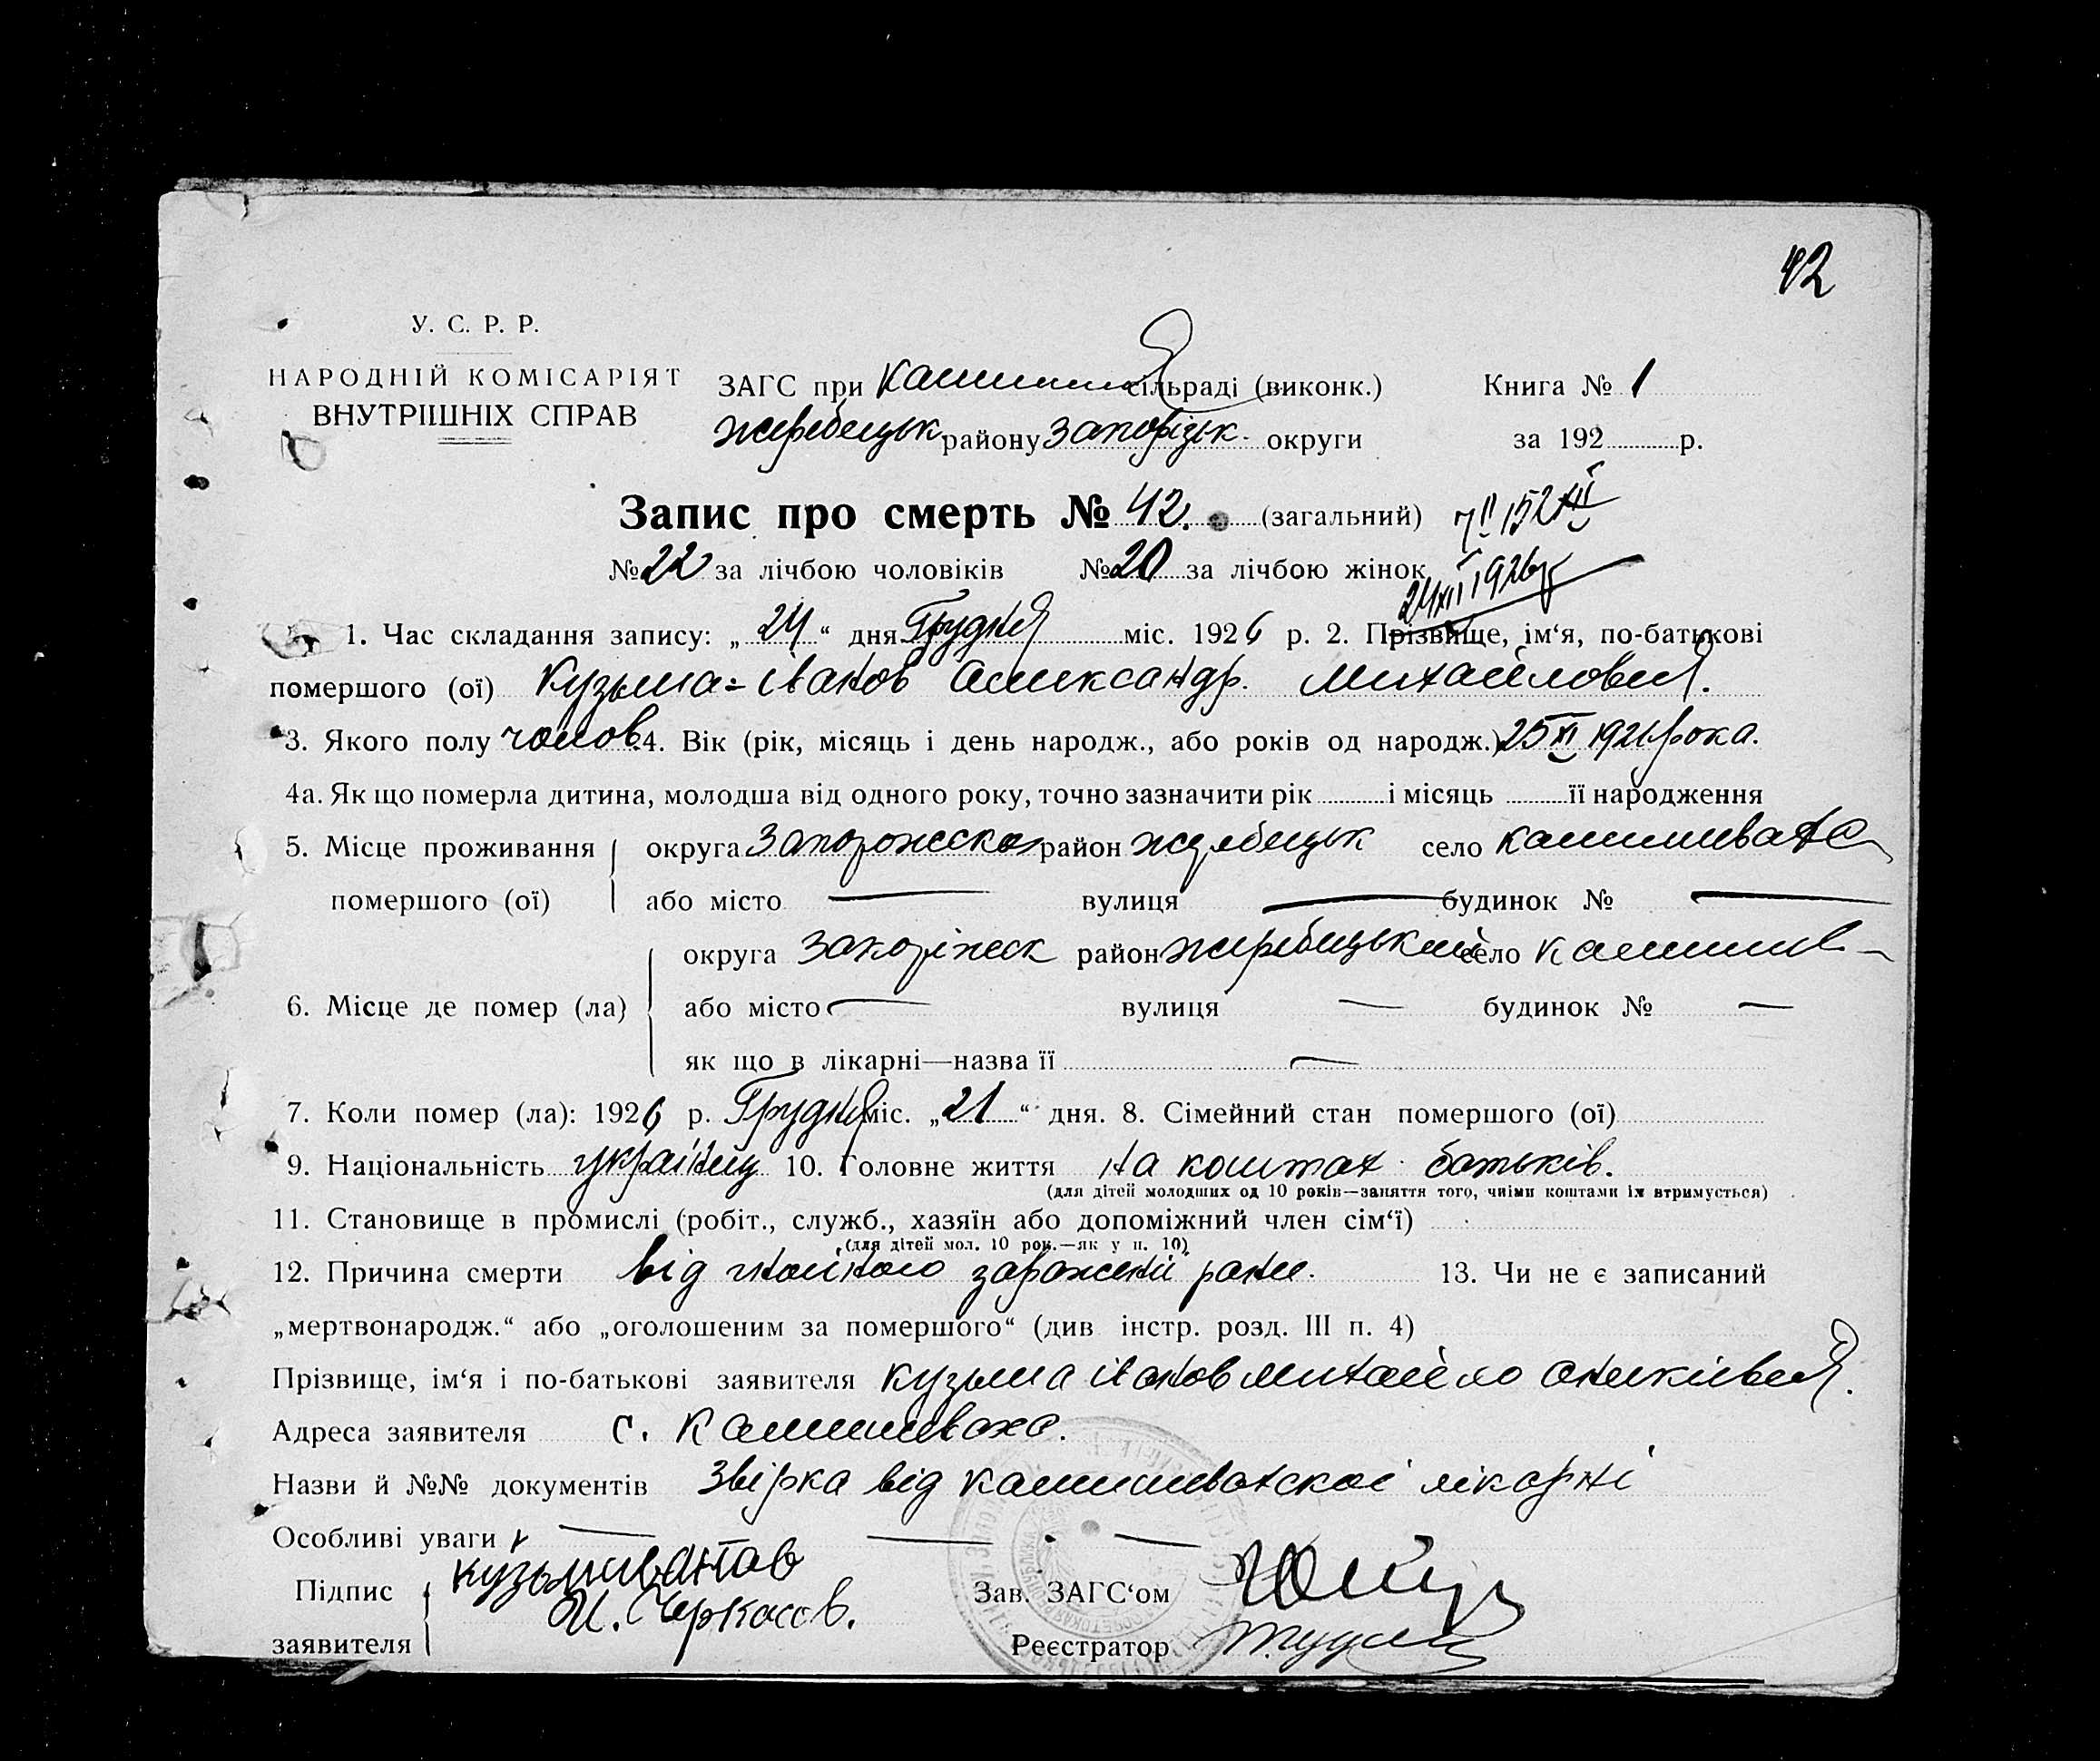 42
У. С. Р. Р.
НАРОДНІЙ КОМІСАРІЯТ
ВНУТРІШНІХ СПРАВ
ЗАГС при сільраді (виконк.)
Книга № 1
жеребецьк району запорізьк. округи
за 192 р.
Запис про смерть № 42. (загальний)
№ 22 за лічбою чоловіків № 20 за лічбою жінок
24 XII 1926
1. Час складання запису: „ 24 “ дня Грудня міс. 1926 р. 2. Прізвище, ім‘я, по-батькові
помершого (ої) Кузьма=іванов Александр. Михайлович.
3. Якого полу чолов. 4. Вік (рік, місяць і день народж., або років од народж.) 25 XI 1926 рока.
4а. Як що померла дитина, молодша від одного року, точно зазначити рік і місяць її народження
5. Місце проживання помершого (ої)
округа район жеребецьк село камишеваха
або місто — вулиця — будинок № —
6. Місце де помер (ла)
округа запоріжск район жеребецький село камишев-
або місто — вулиця — будинок № —
як що в лікарні—назва її —
7. Коли помер (ла): 1926 р. Грудня міс. „ 21 “ дня. 8. Сімейний стан помершого (ої)
9. Національність українець 10. Головне життя на коштах батьків.
(для дітей молодших од 10 років—заняття того, чиїми коштами їх втримується)
11. Становище в промислі (робіт., служб., хазяїн або допоміжний член сім‘ї)
(для дітей мол. 10 рок.—як у п. 10)
12. Причина смерти від гнойного рани. 13. Чи не є записаний
„мертвонародж.“ або „оголошеним за помершого“ (див інстр. розд. III п. 4)
Прізвище, ім‘я і по-батькові заявителя Кузьма іванов михайло
Адреса заявителя с. Камишеваха.
Назви й №№ документів від камишеватскої лікарні
Особливі уваги — — —
Підпис заявителя
И. Черкасов.
Зав. ЗАГС‘ом
Реєстратор